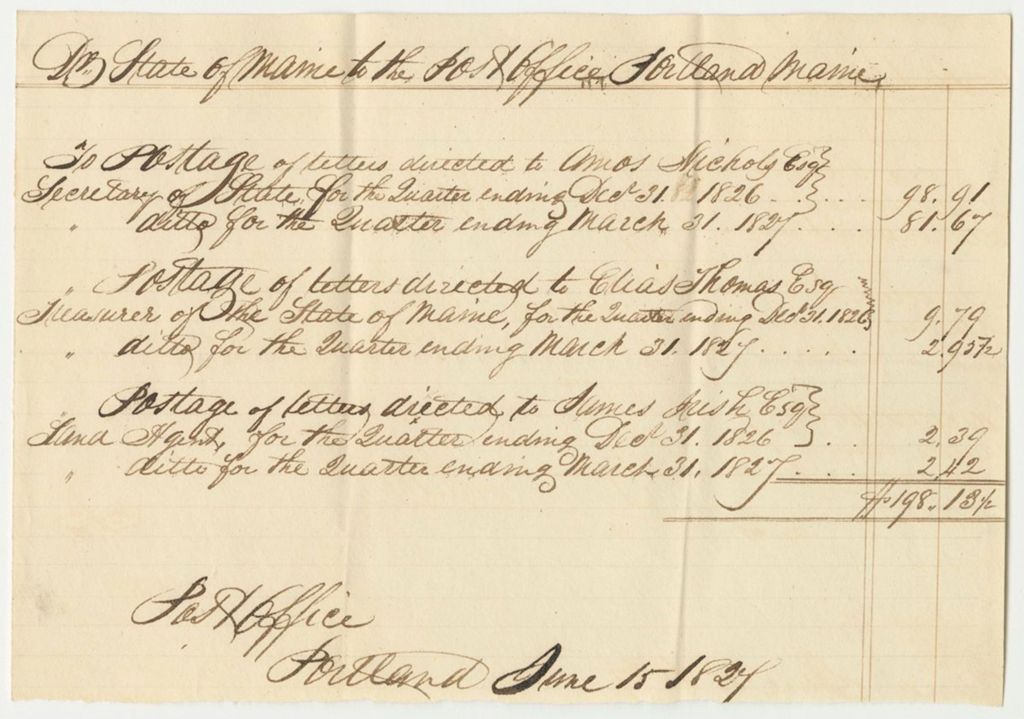 Dr. State of Maine to the Post Office Portland Maine
To Postage of letters directed to Amos Nichols Esq
Secretary of State, for the Quarter ending Decr 31. 1826 . . . . . 98. 91
" ditto for the Quarter ending March 31. 1827. . . . 81. 67
" Postage of letters directed to Elias Thomas Esq
Treasurer of the State of Maine, for the Quarter ending Decr 31. 1826 9. 79
" ditto for the Quarter ending March 31. 1827 . . . . . 2. 95 1/2
Postage of letters directed to James Irish Esq
Land Agent, for the Quarter ending Decr 31. 1826 . . . 2. 39
" ditto for the Quarter ending March 31. 1827 . . . . 2. 42
$198. 13 1/2
Post Office
Portland June 15 1827